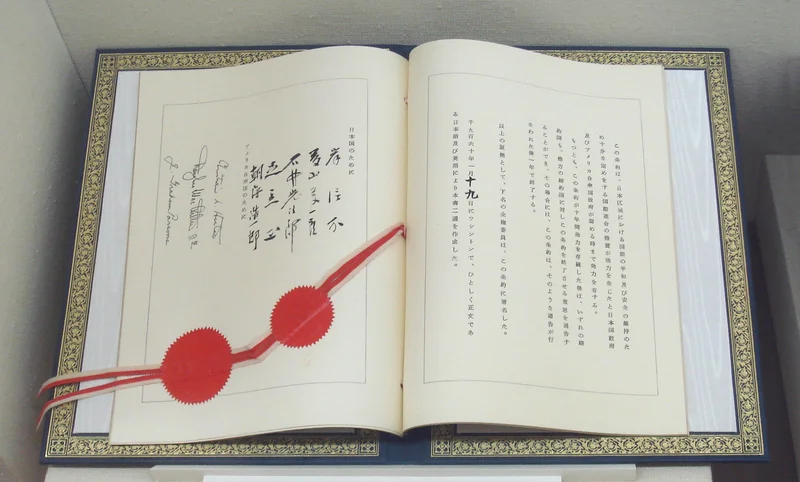 この条約は、日本区域における国際の平和及び安全の維持のた
め十分な定めをする国際連合の措置が効力を生じたと日本国政府
及びアメリカ合衆国政府が認める時まで効力を有する。
もつとも、この条約が十年間効力を存続した後は、いずれの締
約国も、他方の締約国に対しこの条約を終了させる意思を通告す
ることができ、その場合には、この条約は、そのような通告が行
なわれた後一年で終了する。
以上の証拠として、下名の全権委員は、この条約に署名した。
千九百六十年一月十九日にワシントンで、ひとしく正文であ
る日本語及び英語により本書二通を作成した。
日本国のために
岸信介
藤山愛一郎
石井光次郎
足立正
朝海浩一郎
アメリカ合衆国のために
Christian A. Herter
Douglas MacArthur 2nd
J. Graham Parsons